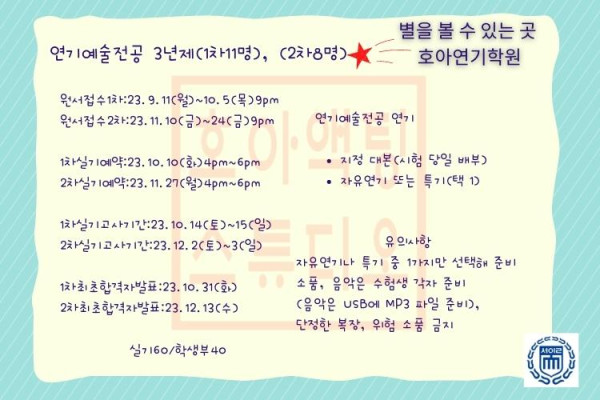 별을 볼 수 있는 곳
호아연기학원
연기예술전공 3년제(1차11명), (2차8명)
원서접수1차:23. 9. 11(월)~10. 5(목)9pm
원서접수2차:23. 11. 10(금)~24(금)9pm
1차실기예약:23. 10. 10(화)4pm~6pm
2차실기예약:23. 11. 27(월)4pm~6pm
1차실기고사기간:23. 10. 14(토)~15(일)
2차실기고사기간:23. 12. 2(토)~3(일)
1차최초합격자발표:23. 10. 31(화)
2차최초합격자발표:23. 12. 13(수)
실기60/학생부40
연기예술전공 연기
• 지정 대본(시험 당일 배부)
• 자유연기 또는 특기(택 1)
유의사항
자유연기나 특기 중 1가지만 선택해 준비
소품, 음악은 수험생 각자 준비
(음악은 USB에 MP3 파일 준비),
단정한 복장, 위험 소품 금지
호아액팅
스튜디오